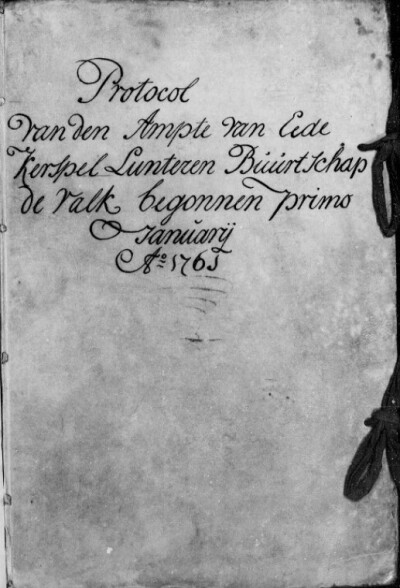 Protocol
van den Ampte van Eede
Kerspel Lunteren Buurtschap
de Valk begonnen primo
Januarij
Ao. 1765